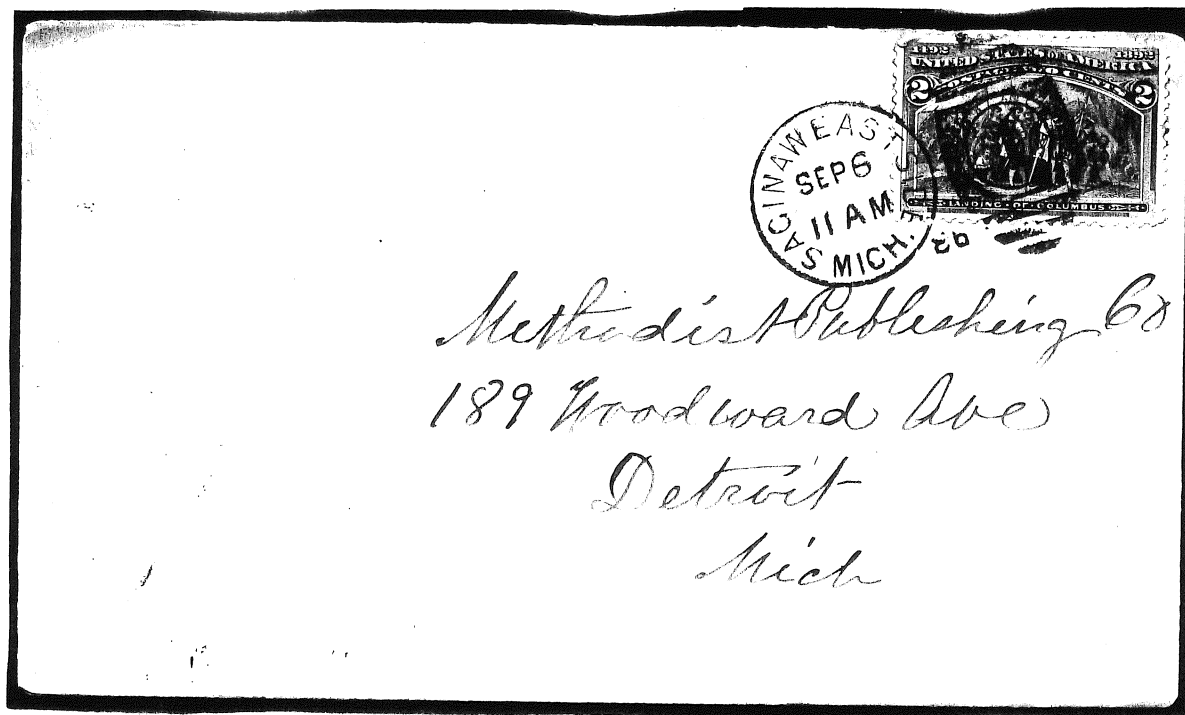 1492 1892
UNITED STATES OF AMERICA
POSTAGE TWO CENTS
2 2
LANDING OF COLUMBUS
SAGINAW EAST S
SEP 6
11 AM
MICH.
Methodist Publishing Co
189 Woodward Ave
Detroit
Mich